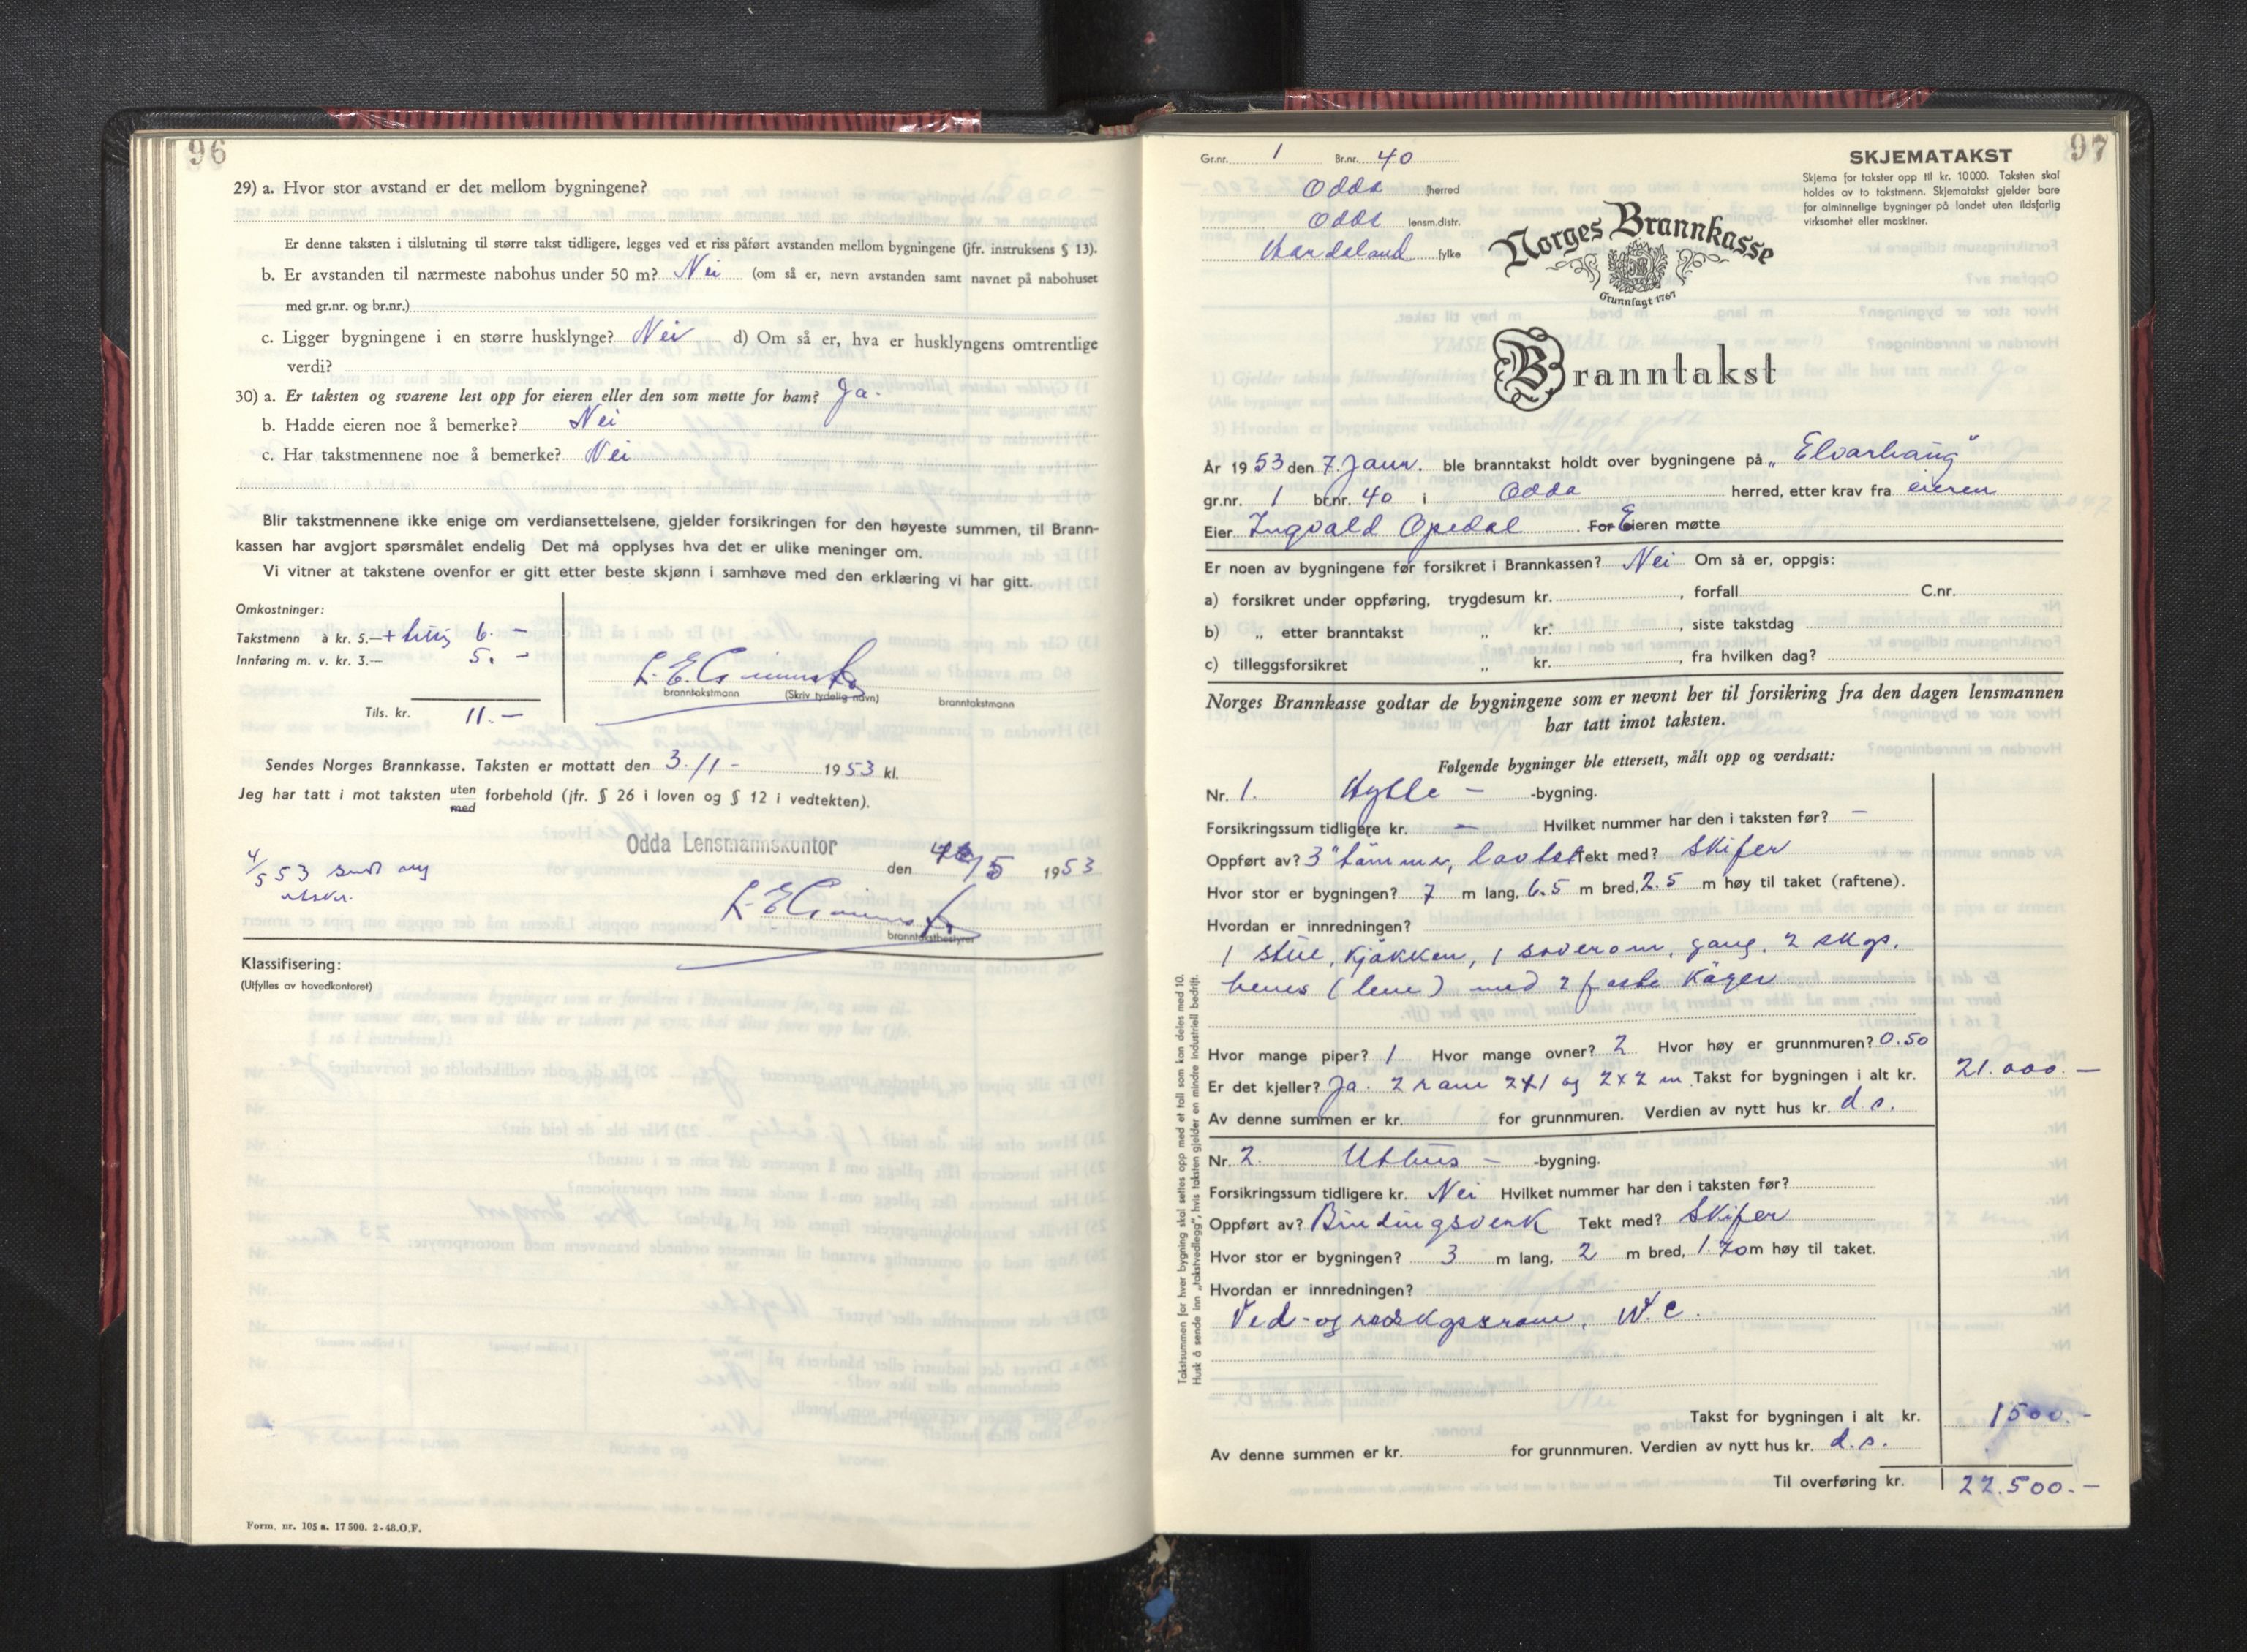 96
29) a. Hvor stor avstand er det mellom bygningene?
Er denne taksten i tilslutning til større takst tidligere, legges ved et riss påført avstanden mellom bygningene (jfr. instruksens § 13).
b. Er avstanden til nærmeste nabohus under 50 m? Nei (om så er, nevn avstanden samt navnet på nabohuset
med gr.nr. og br.nr.)
c. Ligger bygningene i en større husklynge? Nei d) Om så er, hva er husklyngens omtrentlige
verdi?
30) a. Er taksten og svarene lest opp for eieren eller den som møtte for ham? Ja.
b. Hadde eieren noe å bemerke? Nei
c. Har takstmennene noe å bemerke? Nei
Blir takstmennene ikke enige om verdiansettelsene, gjelder forsikringen for den høyeste summen, til Brann-
kassen har avgjort spørsmålet endelig Det må opplyses hva det er ulike meninger om.
Vi vitner at takstene ovenfor er gitt etter beste skjønn i samhøve med den erklæring vi har gitt.
Omkostninger:
Takstmenn à kr. 5.— + 6. –
Innføring m. v. kr. 3.— 5. –
Tils. kr. 11. –
branntakstmann (Skriv tydelig navn) branntakstmann
Sendes Norges Brannkasse. Taksten er mottatt den 3./1 - 1953 kl.
Jeg har tatt i mot taksten uten forbehold (jfr. § 26 i loven og § 12 i vedtekten).
med
Odda Lensmannskontor
den /5 1953
4/5 53
branntakstbestyrer
Klassifisering:
(Utfylles av hovedkontoret)
Form. nr. 105 a. 17 500. 2-48.O.F.
97
Gr.nr. 1 Br.nr. 40
Odda herred
Odda lensm.distr.
Hordaland fylke
SKJEMATAKST
Skjema for takster opp til kr. 10 000. Taksten skal
holdes av to takstmenn. Skjematakst gjelder bare
for alminnelige bygninger på landet uten ildsfarlig
virksomhet eller maskiner.
Norges Brannkasse
Grunnlagt 1767
Branntakst
År 1953 den 7. Janr. ble branntakst holdt over bygningene på „Elvarhaug"
gr.nr. 1 br.nr. 40 i Odda herred, etter krav fra eieren
Eier Ingvald Opedal For Eieren møtte
Er noen av bygningene før forsikret i Brannkassen? Nei Om så er, oppgis:
a) forsikret under oppføring, trygdesum kr. , forfall C.nr.
b) „ etter branntakst „ kr. , siste takstdag
c) tilleggsforsikret „ kr. , fra hvilken dag?
Norges Brannkasse godtar de bygningene som er nevnt her til forsikring fra den dagen lensmannen
har tatt imot taksten.
Følgende bygninger ble ettersett, målt opp og verdsatt:
Nr. 1. Hytte – -bygning.
Forsikringssum tidligere kr. – Hvilket nummer har den i taksten før? –
Oppført av? 3" tømmer, Tekt med? Skifer
Hvor stor er bygningen? 7 m lang, 6.5 m bred, 2.5 m høy til taket (raftene).
Hvordan er innredningen?
1 stue, kjøkken, 1 soverom, gang. 2 skap.
hems (lem) med 2 faste køyer
Hvor mange piper? 1 Hvor mange ovner? 2 Hvor høy er grunnmuren? 0.50
Er det kjeller? Ja. 2 rom 2x1 og 2x2 m Takst for bygningen i alt kr. 21.000. –
Av denne summen er kr. for grunnmuren. Verdien av nytt hus kr. d.s.
Nr. 2. Uthus – -bygning.
Forsikringssum tidligere kr. Nei Hvilket nummer har den i taksten før?
Oppført av? Bindingsverk Tekt med? Skifer
Hvor stor er bygningen? 3 m lang, 2 m bred, 1.70 m høy til taket.
Hvordan er innredningen?
Ved- og redskapsrom, W.C.
Takst for bygningen i alt kr. 1500. –
Av denne summen er kr. for grunnmuren. Verdien av nytt hus kr. d.s.
Til overføring kr. 22.500. –
Takstsummen for hver bygning skal settes opp med et tall som kan deles med 10.
Husk å sende inn „takstvedlegg", hvis taksten gjelder en mindre industriell bedrift.